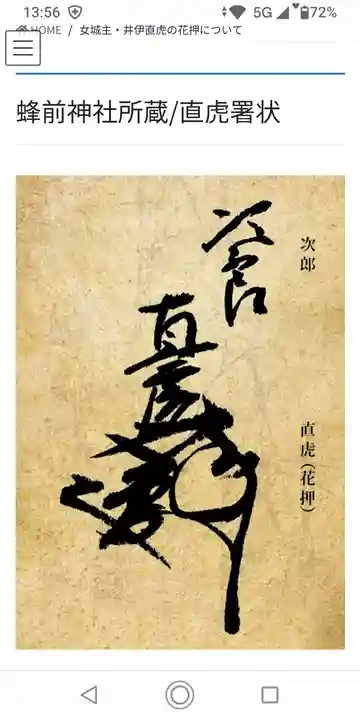 13:56 5G 72%
HOME / 女城主・井伊直虎の花押について
蜂前神社所蔵/直虎署状
次郎
直虎(花押)
次郎
直虎